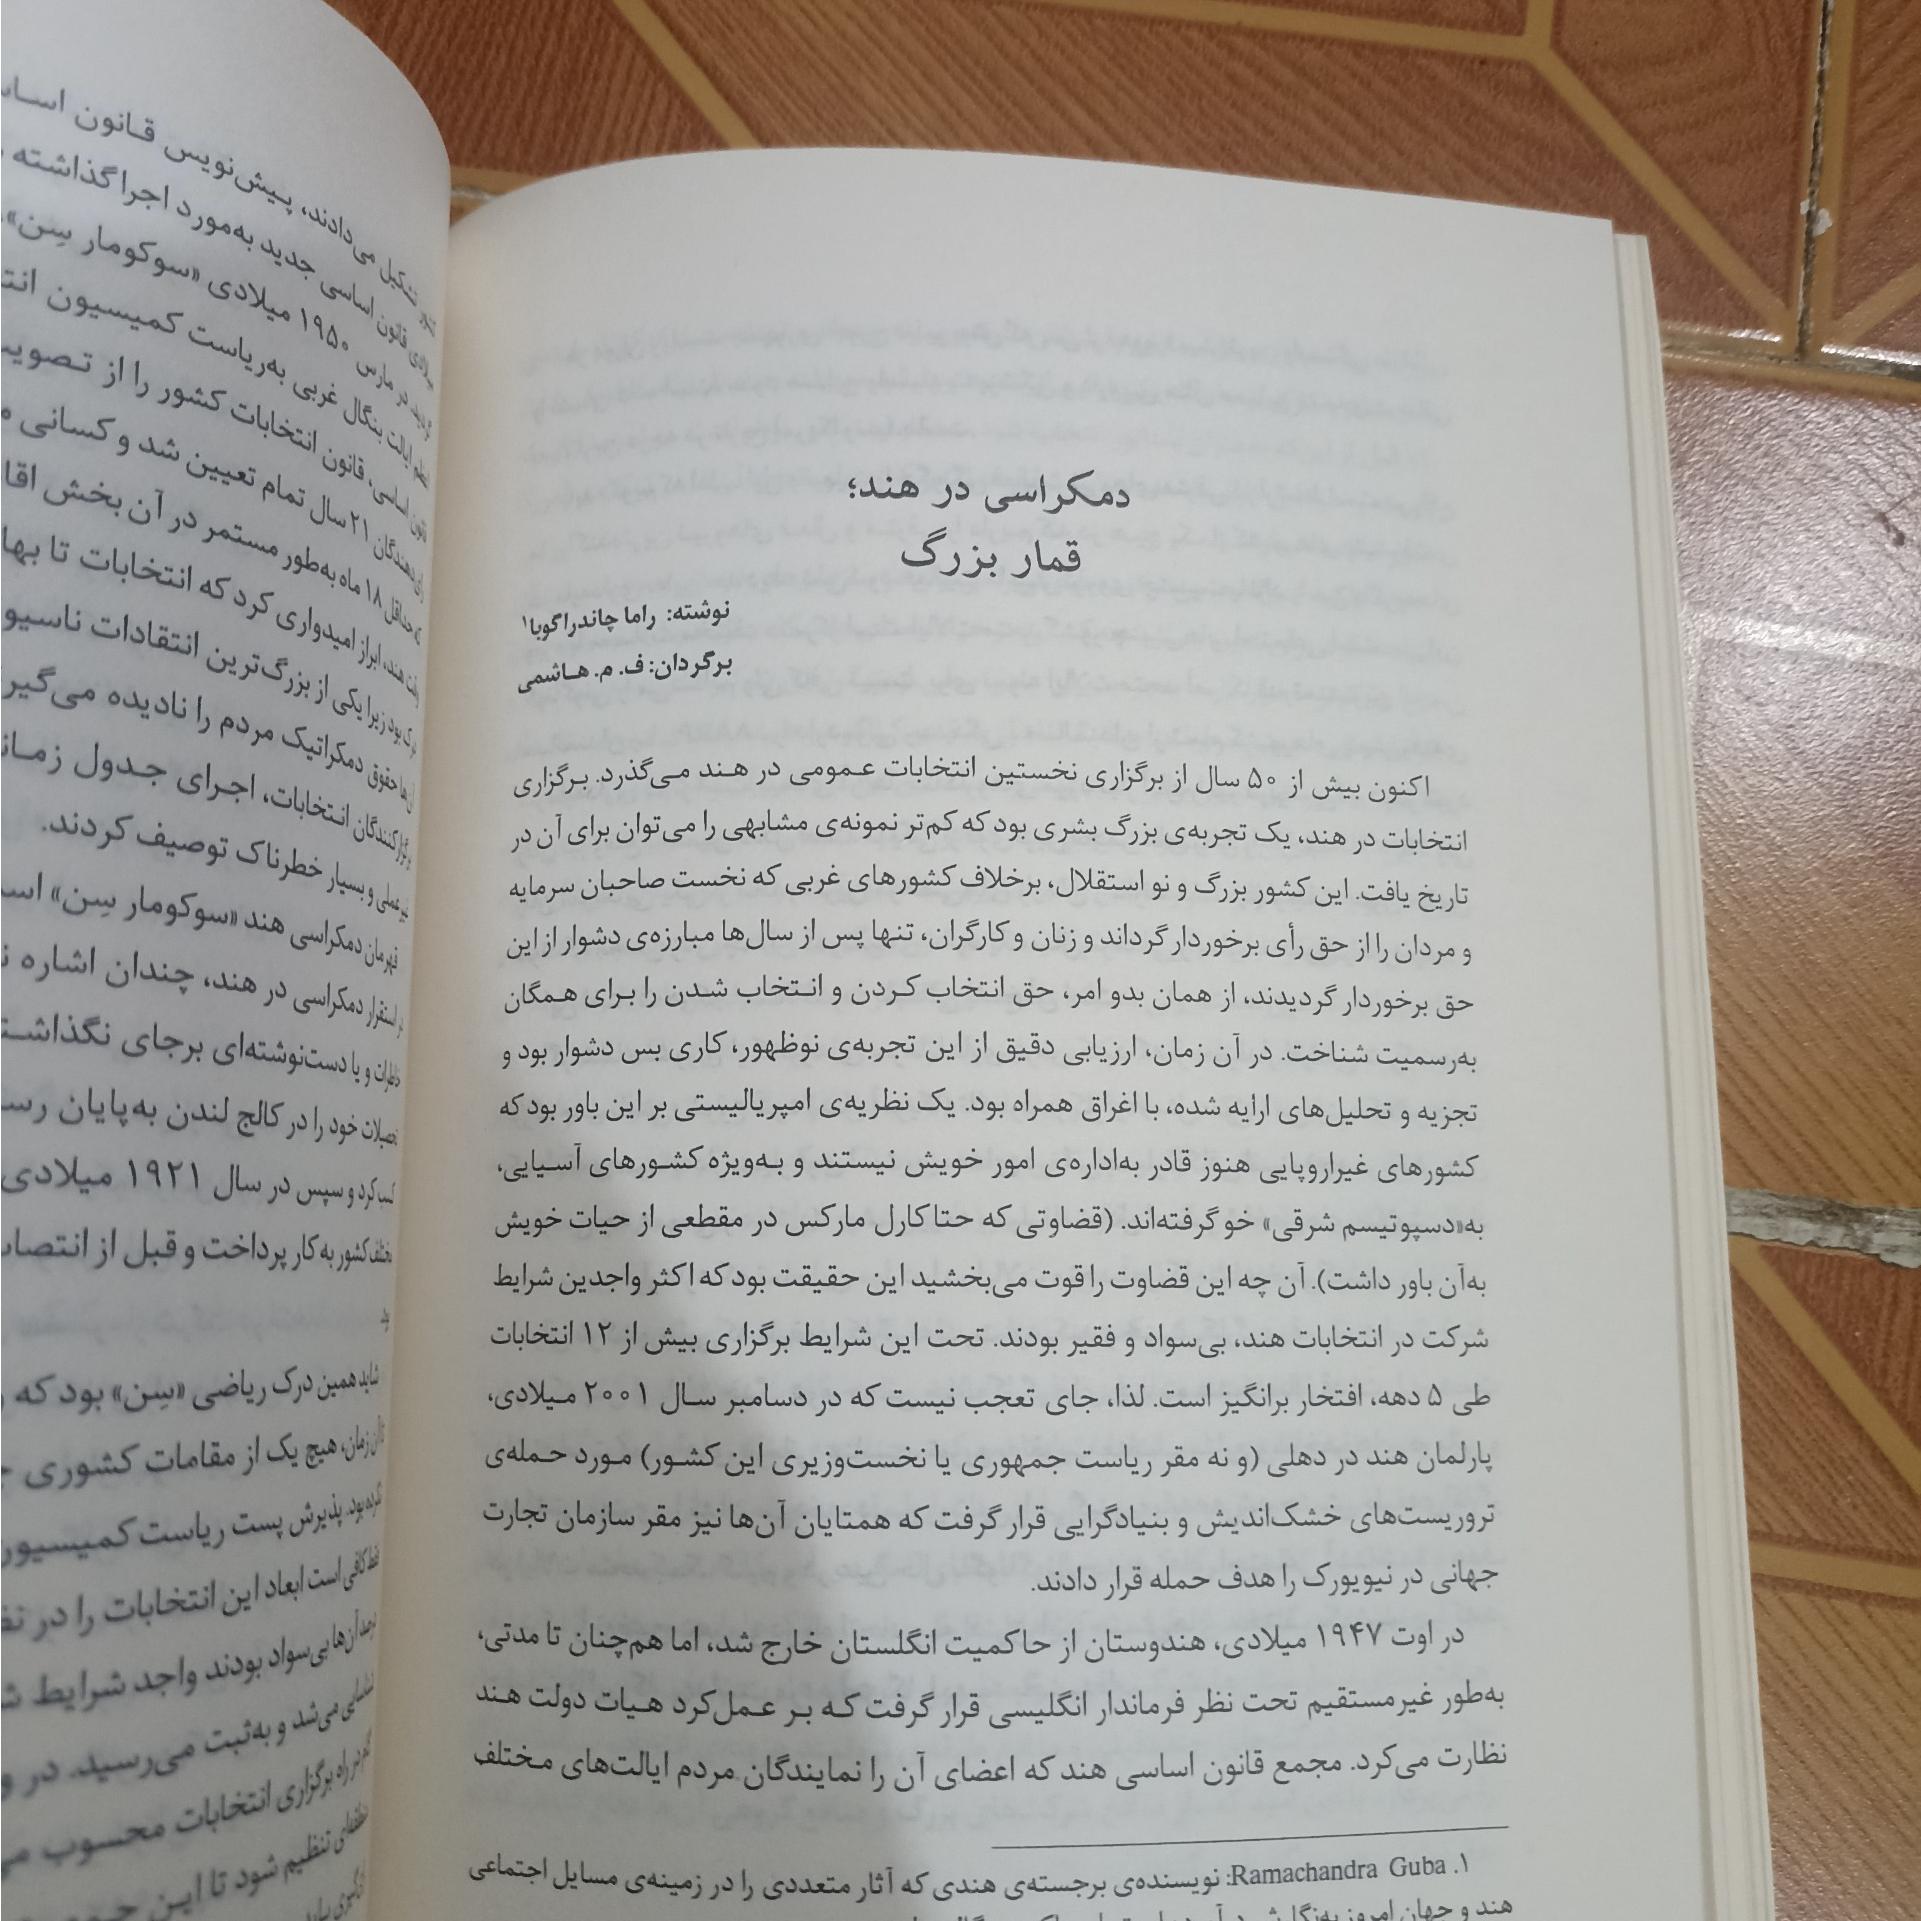 دمکراسی در هند؛
قمار بزرگ
نوشته: راما چاندراگوبا۱
برگردان: ف. م. هاشمی
اکنون بیش از ۵۰ سال از برگزاری نخستین انتخابات عمومی در هند می‌گذرد. برگزاری
انتخابات در هند، یک تجربه‌ی بزرگ بشری بود که کم‌تر نمونه‌ی مشابهی را می‌توان برای آن در
تاریخ یافت. این کشور بزرگ و نو استقلال، برخلاف کشورهای غربی که نخست صاحبان سرمایه
و مردان را از حق رأی برخوردار گرداند و زنان و کارگران، تنها پس از سال‌ها مبارزه‌ی دشوار از این
حق برخوردار گردیدند، از همان بدو امر، حق انتخاب کردن و انتخاب شدن را برای همگان
به‌رسمیت شناخت. در آن زمان، ارزیابی دقیق از این تجربه‌ی نوظهور، کاری بس دشوار بود و
تجزیه و تحلیل‌های ارایه شده، با اغراق همراه بود. یک نظریه‌ی امپریالیستی بر این باور بود که
کشورهای غیراروپایی هنوز قادر به‌اداره‌ی امور خویش نیستند و به‌ویژه کشورهای آسیایی،
به‌«دسپوتیسم شرقی» خو گرفته‌اند. (قضاوتی که حتا کارل مارکس در مقطعی از حیات خویش
به‌آن باور داشت). آن چه این قضاوت را قوت می‌بخشید این حقیقت بود که اکثر واجدین شرایط
شرکت در انتخابات هند، بی‌سواد و فقیر بودند. تحت این شرایط برگزاری بیش از ۱۲ انتخابات
طی ۵ دهه، افتخار برانگیز است. لذا، جای تعجب نیست که در دسامبر سال ۲۰۰۱ میلادی،
پارلمان هند در دهلی (و نه مقر ریاست جمهوری یا نخست‌وزیری این کشور) مورد حمله‌ی
تروریست‌های خشک‌اندیش و بنیادگرایی قرار گرفت که همتایان آن‌ها نیز مقر سازمان تجارت
جهانی در نیویورک را هدف حمله قرار دادند.
در اوت ۱۹۴۷ میلادی، هندوستان از حاکمیت انگلستان خارج شد، اما هم‌چنان تا مدتی،
به‌طور غیرمستقیم تحت نظر فرماندار انگلیسی قرار گرفت که بر عمل‌کرد هیات دولت هند
نظارت می‌کرد. مجمع قانون اساسی هند که اعضای آن را نمایندگان مردم ایالت‌های مختلف
۱. Ramachandra Guba: نویسنده‌ی برجسته‌ی هندی که آثار متعددی را در زمینه‌ی مسایل اجتماعی
هند و جهان امروز
تشکیل می‌دادند، پیش‌نویس قانون
قانون اساسی جدید به‌مورد اجرا گذاشته
در مارس ۱۹۵۰ میلادی «سوکومار سِن»
ایالت بنگال غربی به‌ریاست کمیسیون
قانون اساسی، قانون انتخابات کشور را از
۲۱ سال تمام تعیین شد و کسانی
حداقل ۱۸ ماه به‌طور مستمر در آن بخش
هند، ابراز امیدواری کرد که انتخابات تا
بود زیرا یکی از بزرگ‌ترین انتقادات
حقوق دمکراتیک مردم را نادیده
انتخابات، اجرای جدول
و بسیار خطرناک توصیف کردند.
قهرمان دمکراسی هند «سوکومار سِن»
استقرار دمکراسی در هند، چندان اشاره
و یا دست‌نوشته‌ای برجای
خود را در کالج لندن به‌پایان
کرد و سپس در سال ۱۹۲۱ میلادی
کشور به کار پرداخت و قبل از
شاید همین درک ریاضی «سِن» بود که
زمان، هیچ یک از مقامات کشوری
بود. پذیرش پست ریاست
کافی است ابعاد این انتخابات را در
آن‌ها بی‌سواد بودند واجد شرایط
می‌شد و به‌ثبت می‌رسید. در
راه برگزاری انتخابات محسوب
تنظیم شود تا این